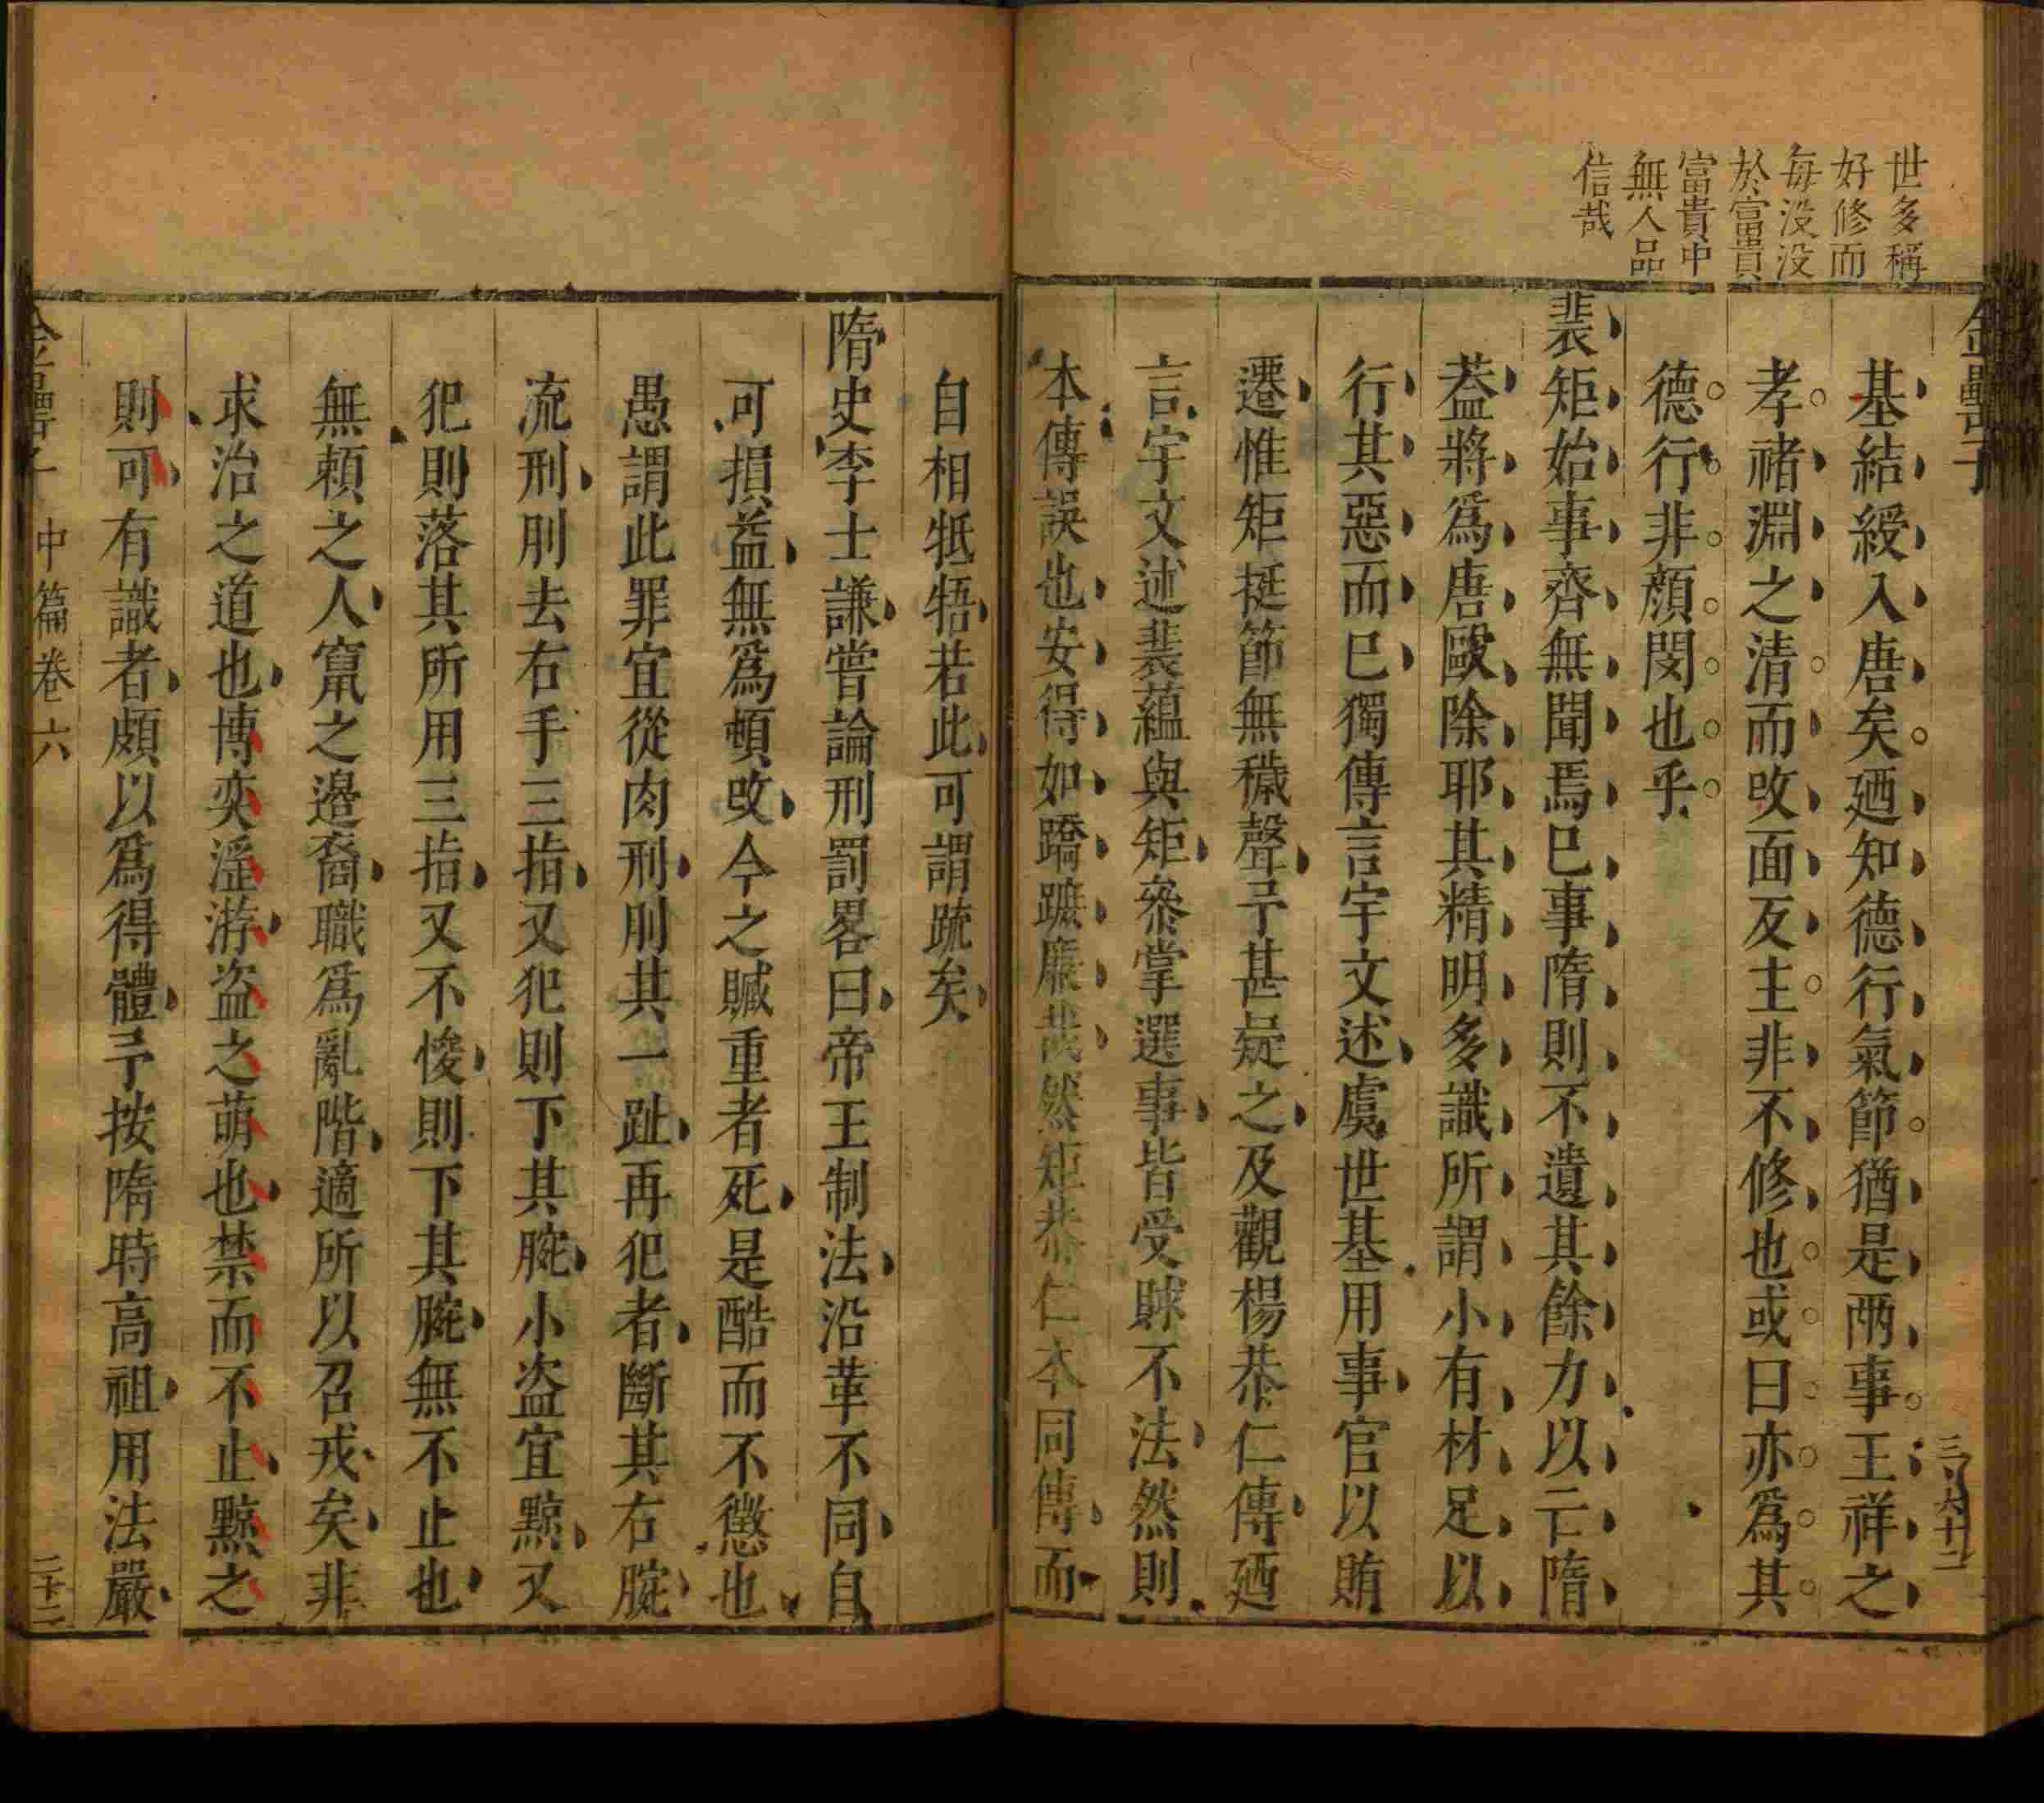 世多稱
好修而
每没没
於富貴
富貴中
無人品
信哉
金罍子
基結綬入唐矣廼知德行氣節猶是兩事王祥之
孝禇淵之清而改面反主非不修也或曰亦為其
德行非顔閔也乎
裴矩始事齊無聞焉巳事隋則不遺其餘力以亡隋
葢將爲唐敺除耶其精明多識所謂小有材足以
行其惡而巳獨傳言宇文述虞世基用事官以賄
遷惟矩挺節無穢聲予甚疑之及觀楊恭仁傳廼
言宇文述裴蘊與矩叅掌選事皆受賕不法然則
本傳誤也安得如蹻蹠廉哉然矩恭仁本同傳而
自相牴牾若此可謂疏矣
隋史李士謙嘗論刑罰畧曰帝王制法沿革不同自
可損益無爲頓改今之贓重者死是酷而不懲也
愚謂此罪宜從肉刑刖其一趾再犯者斷其右腕
流刑刖去右手三指又犯則下其腕小盗宜黥又
犯則落其所用三指又不悛則下其腕無不止也
無頼之人竄之邉裔職爲亂階適所以召戎矣非
求治之道也博奕淫游盗之萌也禁而不止黥之
則可有識者頗以爲得體予按隋時高祖用法嚴
金罍子 中篇卷六 二十二